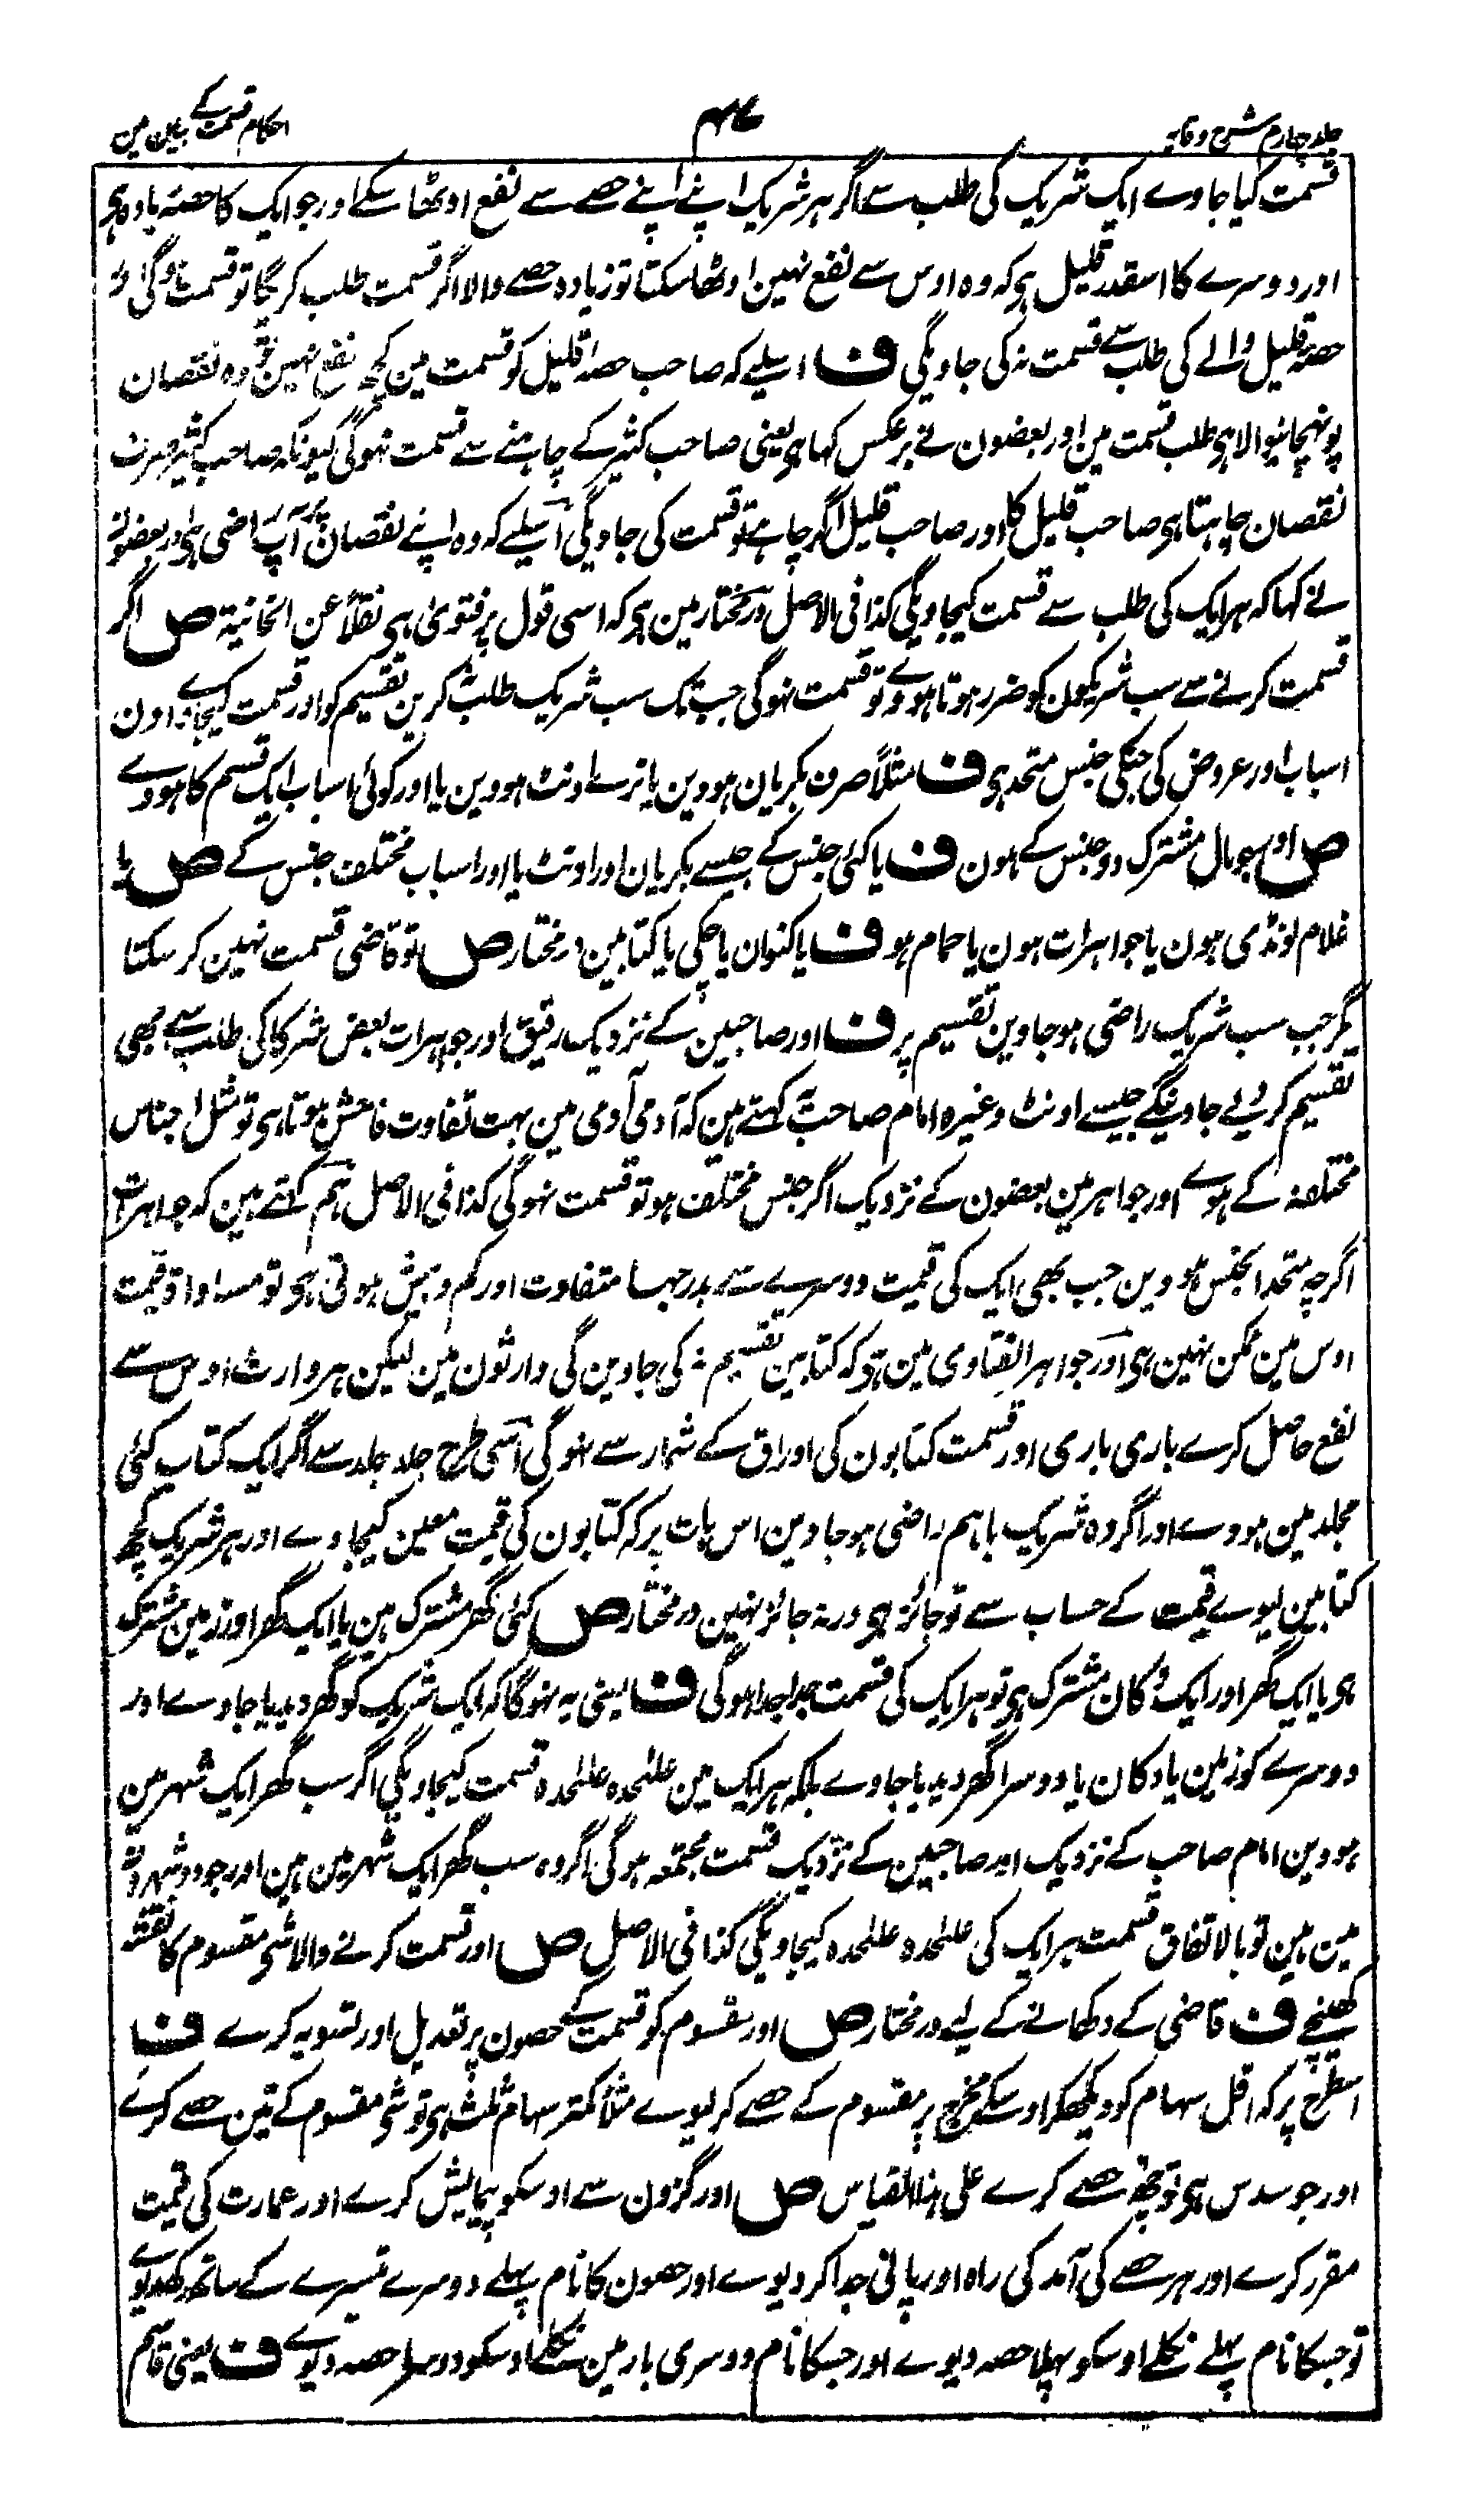 جلد چہارم شرح وقایہ
۴۷
احکام قسمت کے بیان مین
قسمت کیا جاوے ایک شریک کی طلب سے اگر ہر شریک اپنے اپنے حصے سے نفع اوٹھا سکے اور جو ایک کا حصہ زیادہ ہی
اور دوسرے کا اسقدر قلیل ہی کہ وہ اوس سے نفع نہین اوٹھا سکتا تو زیادہ حصے والا اگر قسمت طلب کریگا تو قسمت ہوگی اور
حصہ قلیل والے کی طلب سے قسمت نہ کی جاویگی ف اسلیے کہ صاحب حصہ قلیل کو قسمت مین کچھ نفع نہین تو وہ نقصان
پونہچانیوالا ہی طلب قسمت مین اور بعضون نے برعکس کہا ہی یعنی صاحب کثیر کے چاہنے سے قسمت نہوگی کیونکہ صاحب کثیر صرف
نقصان چاہتا ہی صاحب قلیل کا اور صاحب قلیل اگر چاہے تو قسمت کی جاویگی اسلیے کہ وہ اپنے نقصان پر آپ راضی ہی اور بعضون
نے کہا کہ ہر ایک کی طلب سے قسمت کیجاویگی کذا فی الاصل درمختار مین ہی کہ اسی قول پر فتویٰ ہی نقلاً عن الخانیۃ ص اگر
قسمت کرنے سے سب شریکون کو ضرر ہوتا ہووے تو قسمت نہوگی جب تک سب شریک طلب نکرین تقسیم کو اور قسمت کیجاوے اون
اسباب اور عروض کی جنکی جنس متحد ہی ف مثلاً صرف بکریان ہووین یا نرے اونٹ ہووین یا اور کوئی اسباب ایک قسم کا ہووے
ص اور جو مال مشترک دو جنس کے ہون ف یا کئی جنس کے جیسے بکریان اور اونٹ یا اور اسباب مختلف جنس کے ص یا
غلام لونڈی ہون یا جواہرات ہون یا حمام ہو ف یا کنوان یا چکی یا کتابین درمختار ص تو قاضی قسمت نہین کر سکتا
مگر جب سب شریک راضی ہو جاوین تقسیم پر ف اور صاحبین کے نزدیک رقیق اور جواہرات بعض شرکا کی طلب سے بھی
تقسیم کر دیے جاوینگے جیسے اونٹ وغیرہ امام صاحب کہتے ہین کہ آدمی آدمی مین بہت تفاوت فاحش ہوتا ہی تو مثل اجناس
مختلفہ کے ہوے اور جواہر مین بعضون کے نزدیک اگر جنس مختلف ہو تو قسمت نہوگی کذا فی الاصل ہم کہتے ہین کہ جواہرات
اگرچہ متحد الجنس ہووین جب بھی ایک کی قیمت دوسرے سے بدرجہا متفاوت اور کم و بیش ہوتی ہی تو مساواۃ قیمت
اوس مین ممکن نہین ہی اور جواہر الفتاوی مین ہی کہ کتابین تقسیم نہ کی جاوین گی وارثون مین لیکن ہر وارث اوس سے
نفع حاصل کرے باری باری اور قسمت کتابون کی اوراق کے شمار سے نہوگی اسی طرح جلد جلد سے اگر ایک کتاب کئی
مجلد مین ہووے اور اگر وہ شریک باہم راضی ہو جاوین اس بات پر کہ کتابون کی قیمت معین کیجاوے اور ہر شریک کچھ
کتابین لیوے قیمت کے حساب سے تو جائز ہی ورنہ جائز نہین درمختار ص کئی گھر مشترک ہین یا ایک گھر اور زمین مشترک
ہی یا ایک گھر اور ایک دکان مشترک ہی تو ہر ایک کی قسمت جدا جدا ہوگی ف یعنی یہ نہوگا کہ ایک شریک کو گھر دیدیا جاوے اور
دوسرے کو زمین یا دکان یا دوسرا گھر دیدیا جاوے بلکہ ہر ایک مین علٰحدہ علٰحدہ قسمت کیجاویگی اگر سب گھر ایک شہر مین
ہووین امام صاحب کے نزدیک اور صاحبین کے نزدیک قسمت مجتمعہ ہوگی اگر وہ سب گھر ایک شہر مین ہین اور جو دو شہرون
مین ہین تو بالاتفاق قسمت ہر ایک کی علٰحدہ علٰحدہ کیجاویگی کذا فی الاصل ص اور قسمت کرنے والا شی مقسوم کا نقشہ
کھینچے ف قاضی کے دکھانے کے لیے درمختار ص اور مقسوم کو قسمت کے حصون پر تعدیل اور تسویہ کرے ف
اسطرح پر کہ اقل سہام کو دیکھکر اوسکے مخرج پر مقسوم کے حصے کر لیوے مثلاً کمتر سہام ثلث ہی تو شی مقسوم کے تین حصے کرے
اور جو سدس ہی تو چھ حصے کرے علی ہذا القیاس ص اور گزون سے اوسکو پیمایش کرے اور عمارت کی قیمت
مقرر کرے اور ہر حصے کی آمد کی راہ اور پانی جدا کر دیوے اور حصون کا نام پہلے دوسرے تیسرے کے ساتھ رکھدیوے
تو جسکا نام پہلے نکلے اوسکو پہلا حصہ دیوے اور جسکا نام دوسری بار مین نکلے اوسکو دوسرا حصہ دیوے ف یعنی قاسم